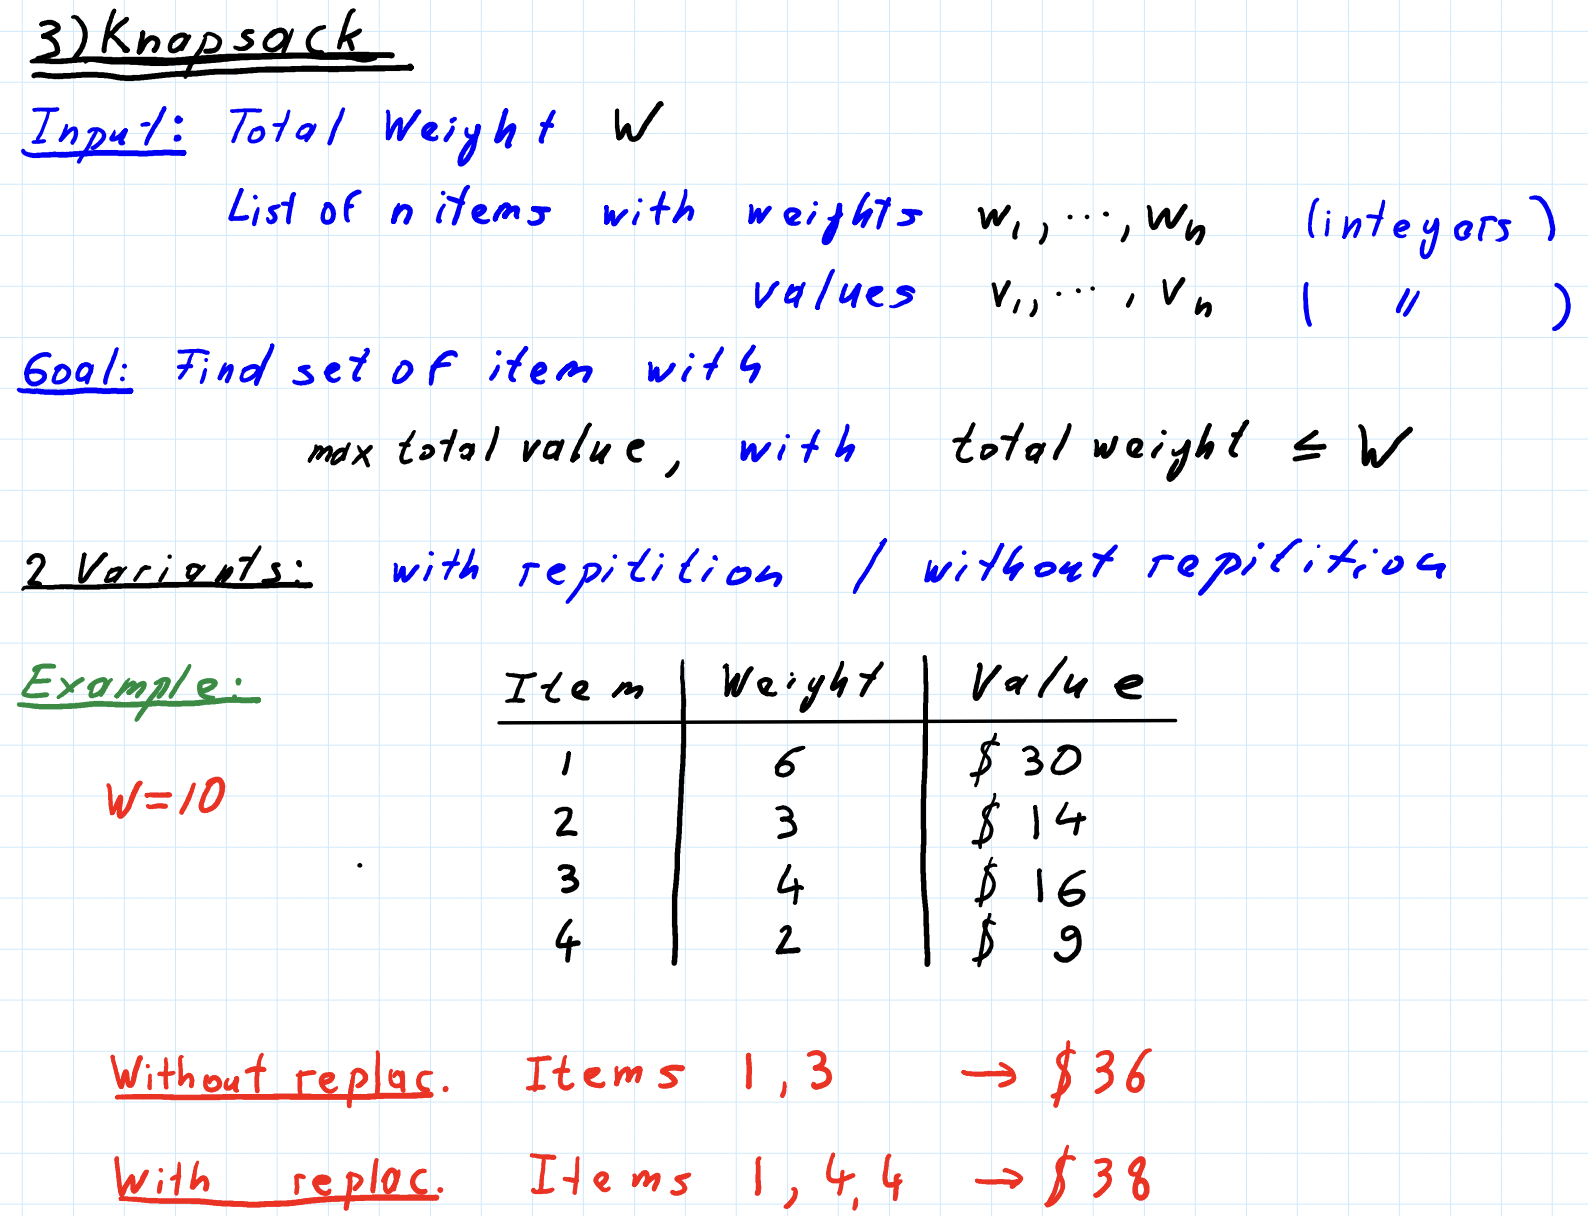 3) Knapsack
Input: Total Weight W
List of n items with weights w₁, ..., wₙ (integers)
values v₁, ..., vₙ ( " )
Goal: Find set of item with
max total value, with total weight ≤ W
2 Variants: with repitition / without repitition
Example: Item Weight Value
1 6 $ 30
W=10
2 3 $ 14
3 4 $ 16
4 2 $ 9
Without replac. Items 1, 3 → $ 36
With replac. Items 1, 4, 4 → $ 38